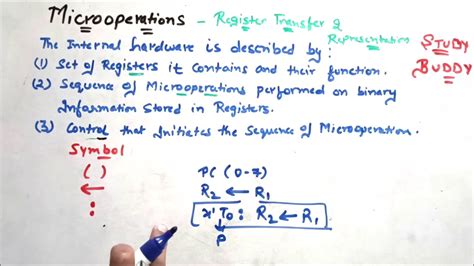 Microoperations - Register Transfer & Representation
STUDY
BUDDY
The Internal hardware is described by:
(1) Set of Registers it Contains and their function.
(2) Sequence of Microoperations performed on binary
Information Stored in Registers.
(3) Control that Initiates the Sequence of Microoperation.
Symbol
( ) PC (0-7)
← R₂ ← R₁
: x'T₀ : R₂ ← R₁
P